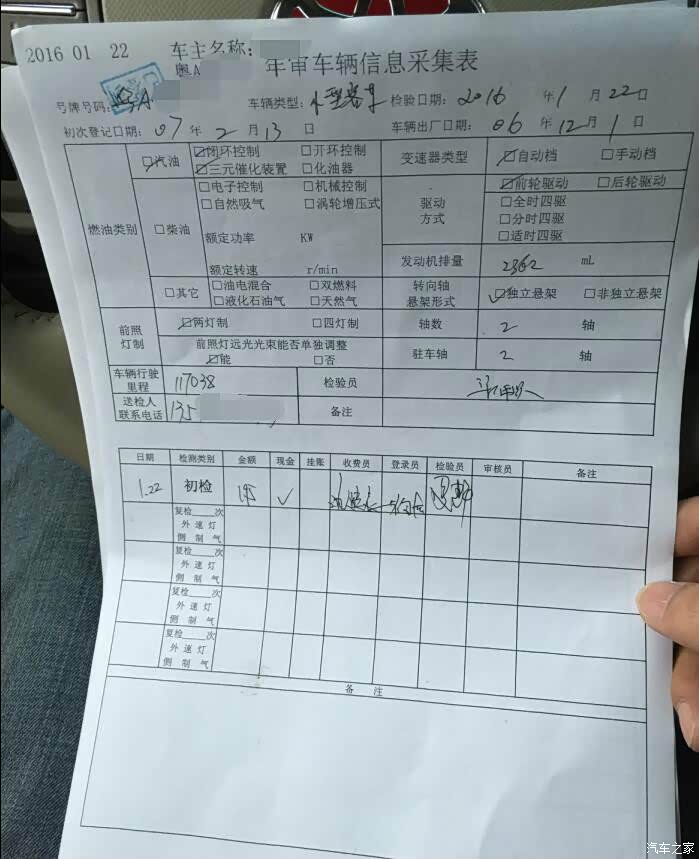 2016 01 22 车主名称:
粤A
年审车辆信息采集表
号牌号码: 粤A 车辆类型: 小型客车 检验日期: 2016 年 1 月 22 日
初次登记日期: 07 年 2 月 13 日 车辆出厂日期: 06 年 12 月 1 日
燃油类别
☑汽油 ☑闭环控制 □开环控制
☑三元催化装置 □化油器
□柴油 □电子控制 □机械控制
□自然吸气 □涡轮增压式
额定功率 KW
额定转速 r/min
□其它 □油电混合 □双燃料
□液化石油气 □天然气
变速器类型 ☑自动档 □手动档
驱动方式 ☑前轮驱动 □后轮驱动
□全时四驱
□分时四驱
□适时四驱
发动机排量 2362 mL
转向轴悬架形式 ☑独立悬架 □非独立悬架
前照灯制 ☑两灯制 □四灯制
前照灯远光光束能否单独调整
☑能 □否
轴数 2 轴
驻车轴 2 轴
车辆行驶里程 117038 检验员
送检人联系电话 135 备注
日期 检测类别 金额 现金 挂账 收费员 登录员 检验员 审核员 备注
1.22 初检 195 ✓
复检____次
外 速 灯
侧 制 气
复检____次
外 速 灯
侧 制 气
复检____次
外 速 灯
侧 制 气
复检____次
外 速 灯
侧 制 气
备 注
汽车之家